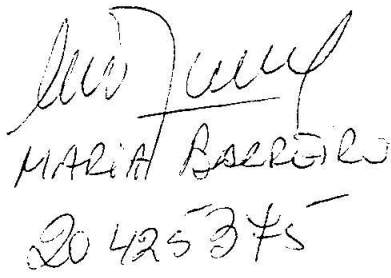 MARIA BARREIRO
20425375